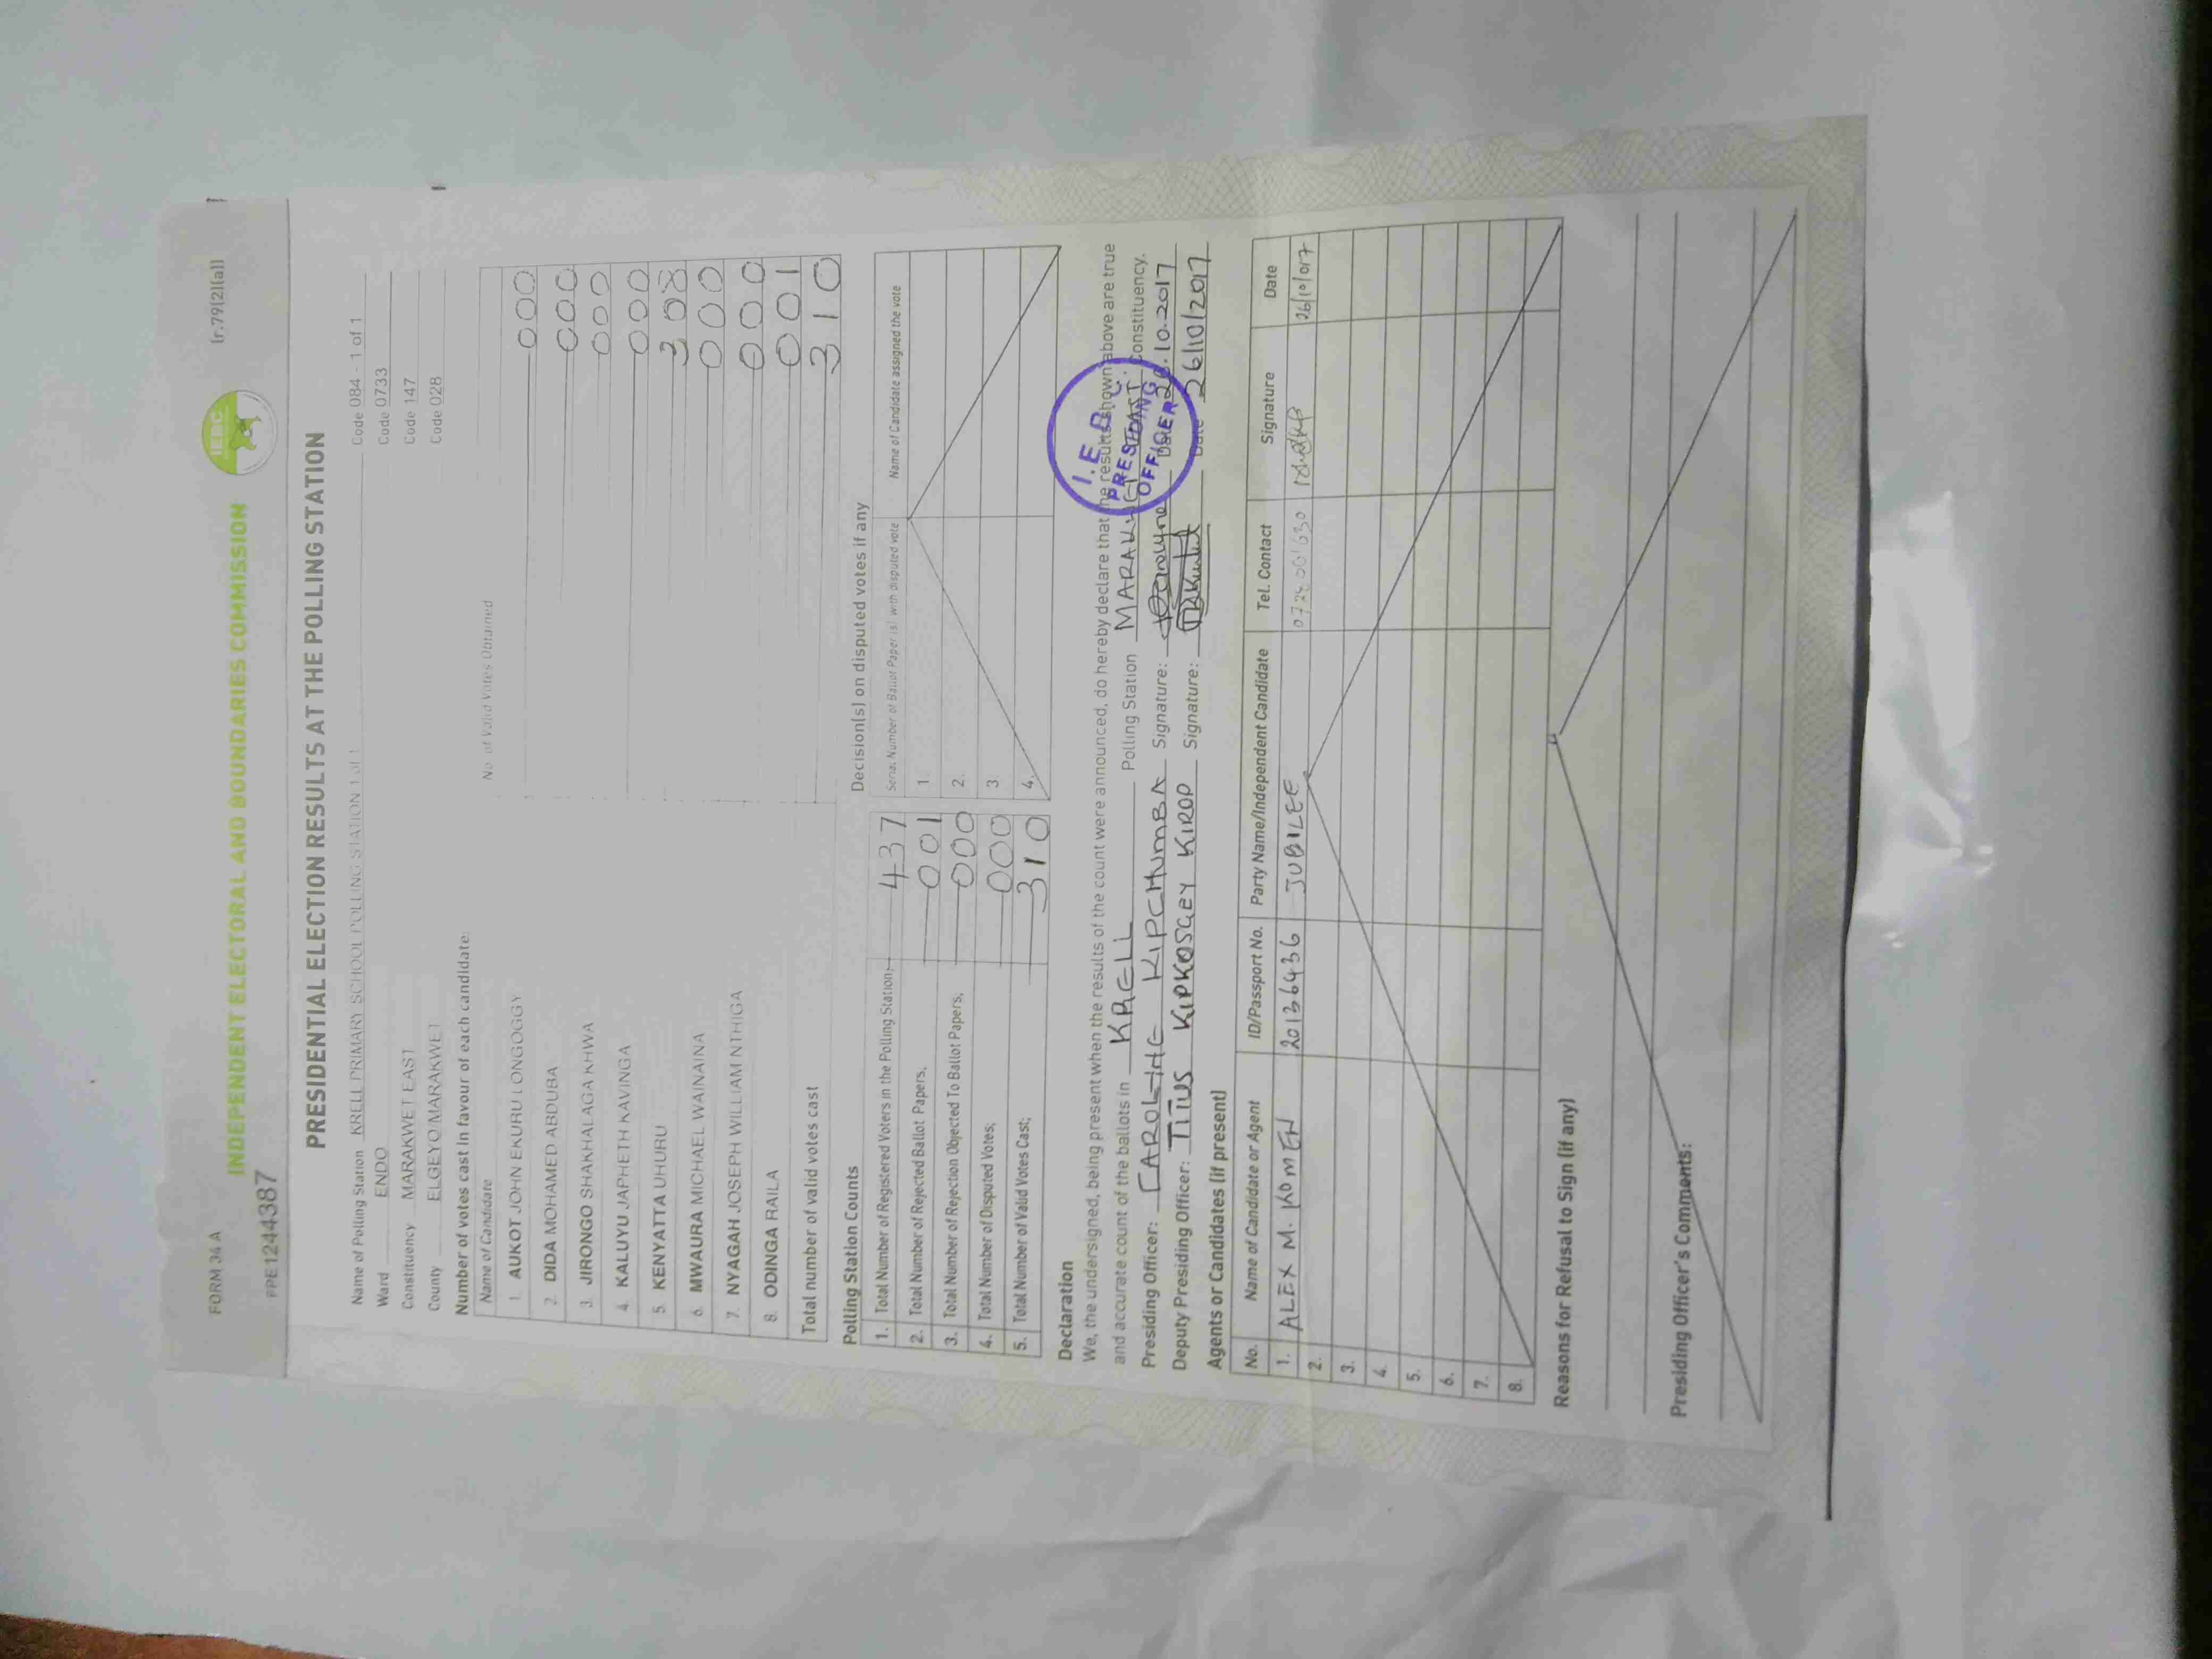 FORM 34 A
(r.79(2)(a))
IEBC
INDEPENDENT ELECTORAL AND BOUNDARIES COMMISSION
PPE1244387
PRESIDENTIAL ELECTION RESULTS AT THE POLLING STATION
Name of Polling Station KRELL PRIMARY SCHOOL POLLING STATION 1 of 1 Code 084 - 1 of 1
Ward ENDO Code 0733
Constituency MARAKWET EAST Code 147
County ELGEYO MARAKWET Code 028
Number of votes cast in favour of each candidate:
Name of Candidate No of Valid Votes Obtained
1. AUKOT JOHN EKURU LONGOGGY 000
2. DIDA MOHAMED ABDUBA 000
3. JIRONGO SHAKHALAGA KHWA 000
4. KALUYU JAPHETH KAVINGA 000
5. KENYATTA UHURU 308
6. MWAURA MICHAEL WAINAINA 000
7. NYAGAH JOSEPH WILLIAM NTHIGA 000
8. ODINGA RAILA 001
Total number of valid votes cast 310
Polling Station Counts
1. Total Number of Registered Voters in the Polling Station; 437
2. Total Number of Rejected Ballot Papers, 001
3. Total Number of Rejection Objected To Ballot Papers, 000
4. Total Number of Disputed Votes; 000
5. Total Number of Valid Votes Cast; 310
Decision(s) on disputed votes if any
Serial Number of Ballot Paper(s) with disputed vote Name of Candidate assigned the vote
1.
2.
3
4.
Declaration
We, the undersigned, being present when the results of the count were announced, do hereby declare that the results shown above are true
and accurate count of the ballots in KRELL Polling Station MARAKWET EAST Constituency.
Presiding Officer: CAROLINE KIPCHUMBA Signature: Date 26.10.2017
Deputy Presiding Officer: TITUS KIPKOSGEY KIROP Signature: Date 26/10/2017
I.E.B.C.
PRESIDING
OFFICER
Agents or Candidates (if present)
No. Name of Candidate or Agent ID/Passport No. Party Name/Independent Candidate Tel. Contact Signature Date
1. ALEX M. KOMEN 20136436 JUBILEE 26/10/017
2.
3.
4.
5.
6.
7.
8.
Reasons for Refusal to Sign (if any)
Presiding Officer's Comments: